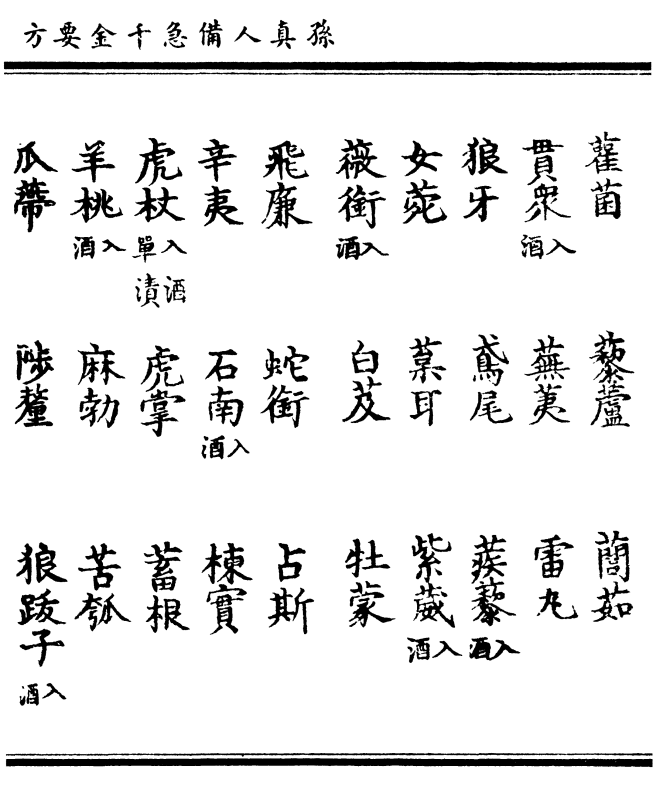 孫真人備急千金要方
雚菌　藜蘆　䕡茹
貫衆入酒　蕪荑　雷丸
狼牙　鳶尾　蒺藜入酒
女菀　葈耳　紫葳入酒
薇銜入酒　白芨　牡蒙
飛廉　蛇銜　占斯
辛夷　石南入酒　楝實
虎杖入酒單漬　虎掌　蓄根
羊桃入酒　麻勃　苦瓠
瓜蔕　陟釐　狼跋子入酒